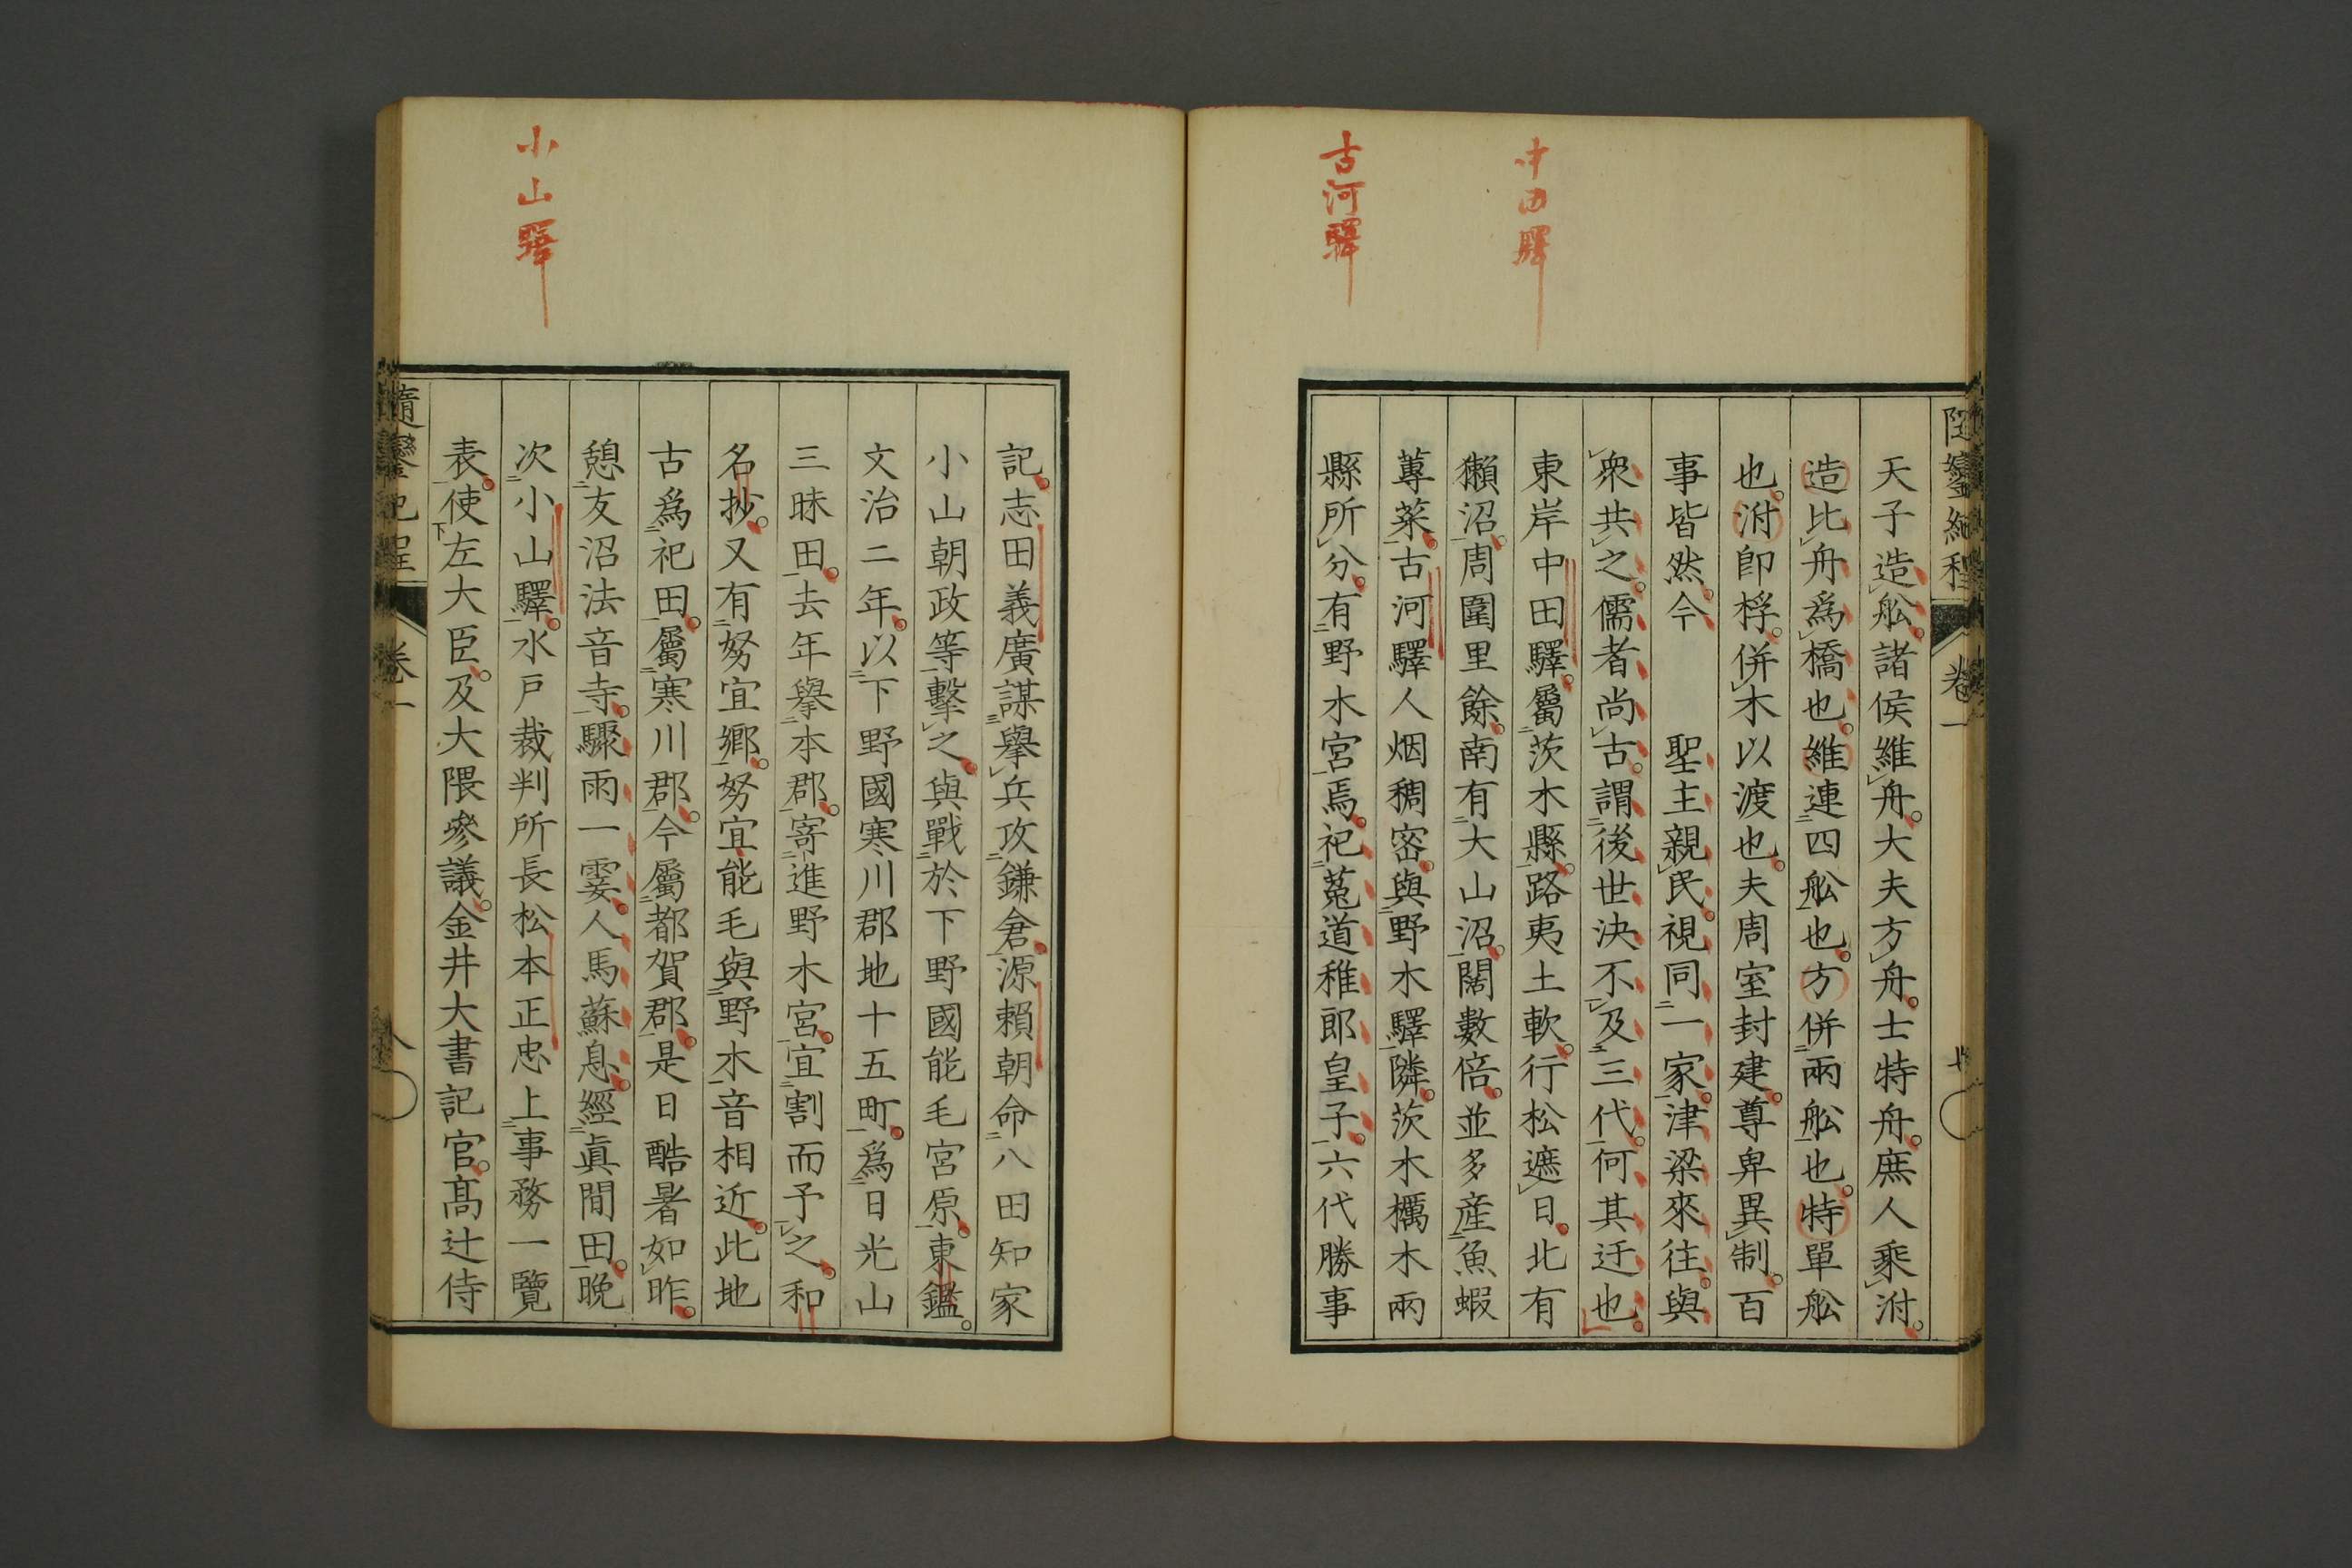 中田驛
古河驛
天子造舩。諸侯維舟。大夫方舟。士特舟。庶人乘泭。
造比舟爲橋也。維連四舩也。方併兩舩也。特單舩
也。泭卽桴。併木以渡也。夫周室封建。尊卑異制。百
事皆然。今　　聖主親民。視同一家。津梁來往。與
衆共之。儒者尚古。謂後世決不及三代。何其迂也。
東岸中田驛。屬茨木縣。路夷土軟。行松遮日。北有
獺沼。周圍里餘。南有大山沼。闊數倍。並多産魚蝦
蓴菜。古河驛人烟稠密。與野木驛隣。茨木櫔木兩
縣所分。有野木宮焉。祀菟道稚郎皇子。六代勝事
小山驛
記。志田義廣謀擧兵攻鎌倉。源賴朝命八田知家
小山朝政等擊之。與戰於下野國能毛宮原。東鑑。
文治二年。以下野國寒川郡地十五町。爲日光山
三昧田。去年擧本郡。寄進野木宮。宜割而予之。和
名抄。又有努宜郷。努宜能毛與野木音相近。此地
古爲祀田。屬寒川郡。今屬都賀郡。是日酷暑如昨。
憩友沼法音寺。驟雨一霎。人馬蘇息。經眞間田。晩
次小山驛。水戸裁判所長松本正忠上事務一覽
表。使左大臣。及大隈參議。金井大書記官。髙辻侍
隨鑾紀程
卷一
八